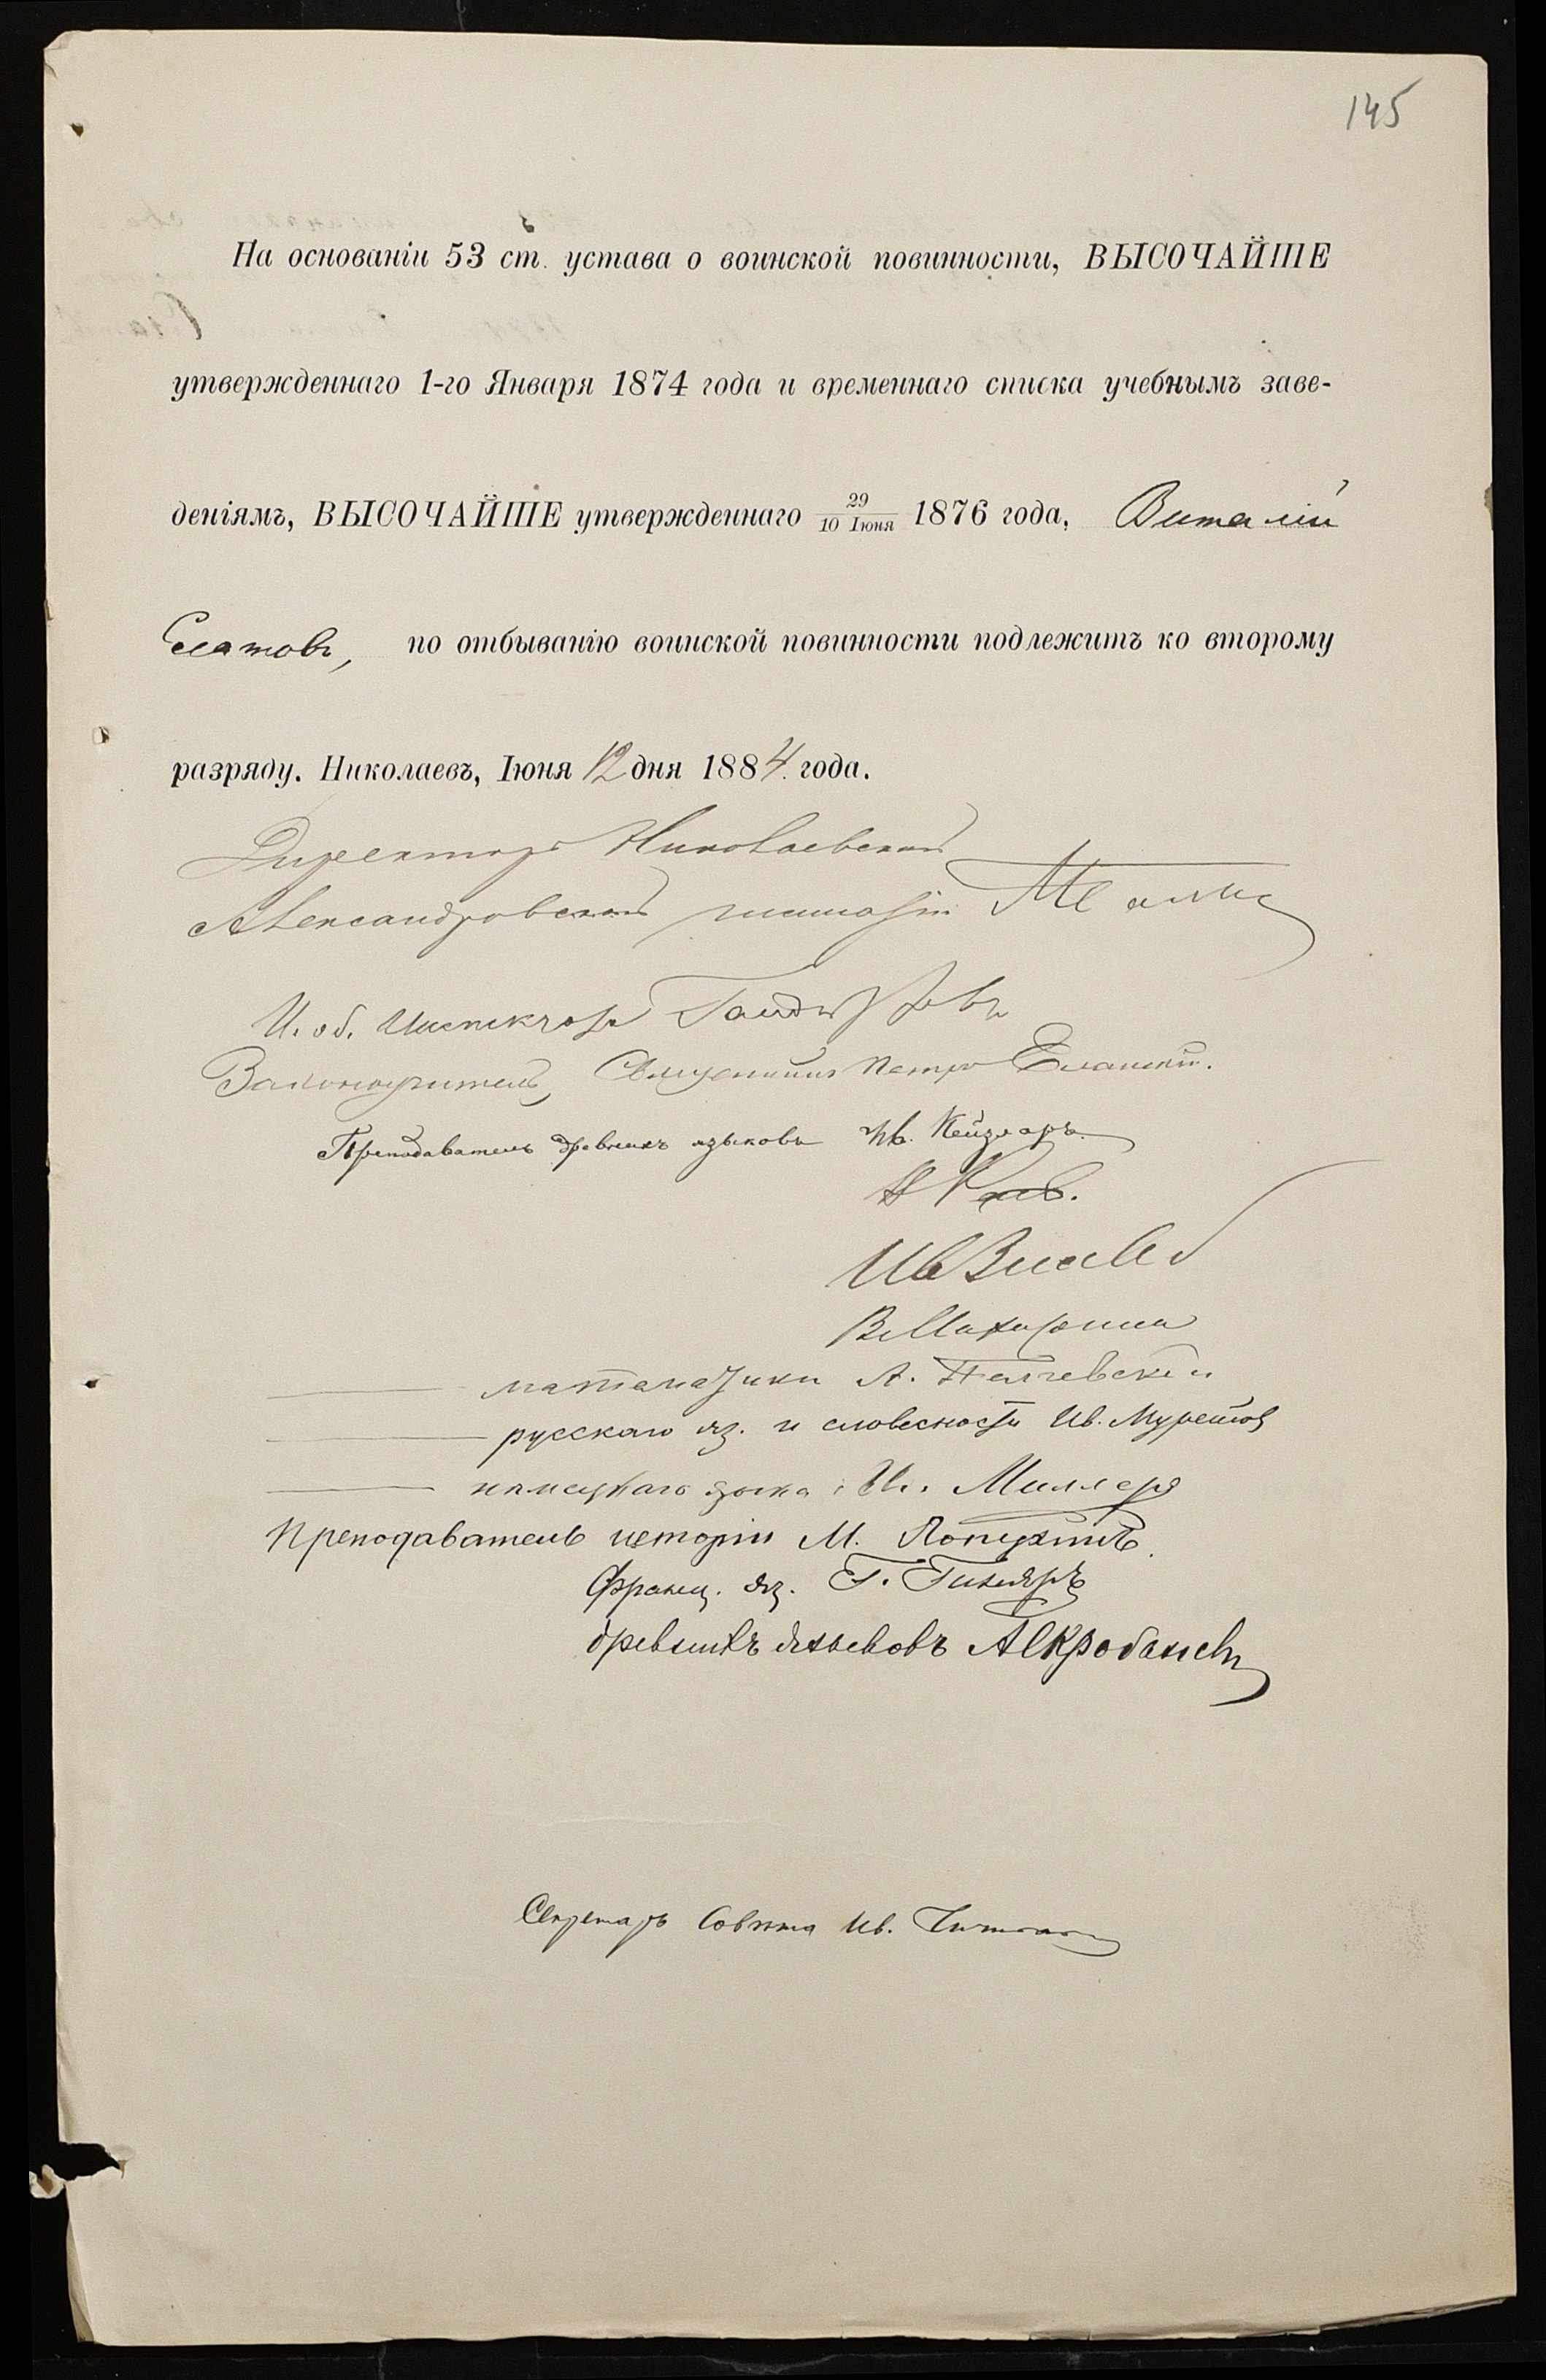 145
На основаніи 53 ст. устава о воинской повинности, ВЫСОЧАЙШЕ
утвержденнаго 1-го Января 1874 года и временнаго списка учебнымъ заве-
деніямъ, ВЫСОЧАЙШЕ утвержденнаго 29/10 Іюня 1876 года, Виталій
Слатовъ, по отбыванію воинской повинности подлежитъ ко второму
разряду. Николаевъ, Іюня 12 дня 1884 года.
Директоръ Николаевской
Александровской гимназіи
И. об. Инспектора
Законоучитель, Священникъ Петръ Еланскій.
Преподаватель древнихъ языковъ Ив. Кейзларъ
математики А.
русскаго яз. и словесности Ив. Муретовъ
нѣмецкаго языка И. Миллеръ
Преподаватель исторіи М. Лопухинъ.
Франц. яз. Г.
древнихъ языковъ
Секретарь Совѣта Ив.